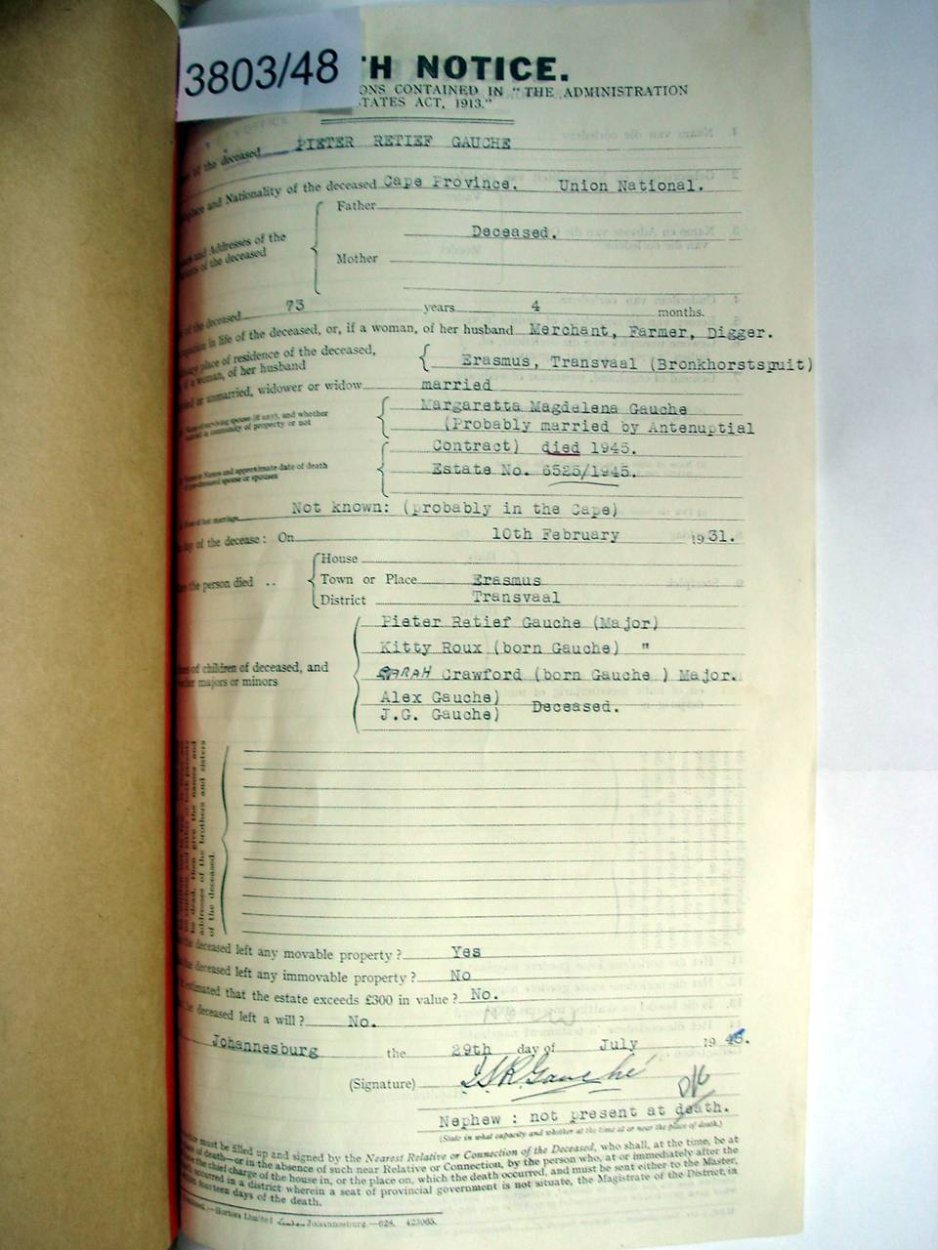 3803/48
H NOTICE.
ONS CONTAINED IN "THE ADMINISTRATION
TATES ACT, 1913."
of the deceased PIETER RETIEF GAUCHE
and Nationality of the deceased Cape Province. Union National.
Father
and Addresses of the
of the deceased
Deceased.
Mother
of the deceased 73 years 4 months.
in life of the deceased, or, if a woman, of her husband Merchant, Farmer, Digger.
place of residence of the deceased,
a woman, of her husband
Erasmus, Transvaal (Bronkhorstspuit)
or unmarried, widower or widow married
of surviving spouse (if any), and whether
married in community of property or not
Margaretta Magdelena Gauche
(Probably married by Antenuptial
Contract) died 1945.
Names and approximate date of death
of predeceased spouse or spouses
Estate No. 6525/1945.
Not known: (probably in the Cape)
day of the decease: On 10th February 1931.
the person died ..
House
Town or Place Erasmus
District Transvaal
of children of deceased, and
majors or minors
Pieter Retief Gauche (Major)
Kitty Roux (born Gauche) "
SARAH Crawford (born Gauche ) Major.
Alex Gauche)
J.G. Gauche) Deceased.
be dead, then give the names and
addresses of the brothers and sisters
of the deceased.
deceased left any movable property? Yes
deceased left any immovable property? No
estimated that the estate exceeds £300 in value? No.
deceased left a will? No.
Johannesburg the 29th day of July 1948.
(Signature) Gauche
Nephew : not present at death.
(State in what capacity and whether at the time at or near the place of death.)
must be filled up and signed by the Nearest Relative or Connection of the Deceased, who shall, at the time, be at
of death—or in the absence of such near Relative or Connection, by the person who, at or immediately after the
the chief charge of the house in, or the place on, which the death occurred, and must be sent either to the Master,
occurred in a district wherein a seat of provincial government is not situate, the Magistrate of the District, in
fourteen days of the death.
Hortors Limited Johannesburg—628. 423065.